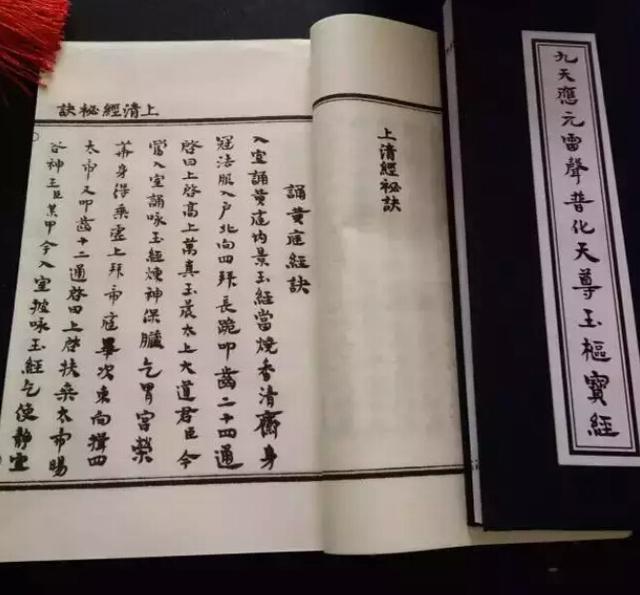 九天應元雷聲普化天尊玉樞寶經
上清經祕訣
上清經祕訣
誦黄庭經訣
入室誦黄庭内景玉經當燒香清齋身
冠法服入户北向四拜長跪叩齒二十四通
啓曰上啓高上萬真玉晨太上大道君臣今
當入室誦咏玉經煉神保臟乞胃宫榮
華身得乘虚上拜帝庭畢次東向揖四
太帝又叩齒十二通啓曰上啓扶桑太帝暘
谷神王臣某甲今入室披咏玉經乞使静室